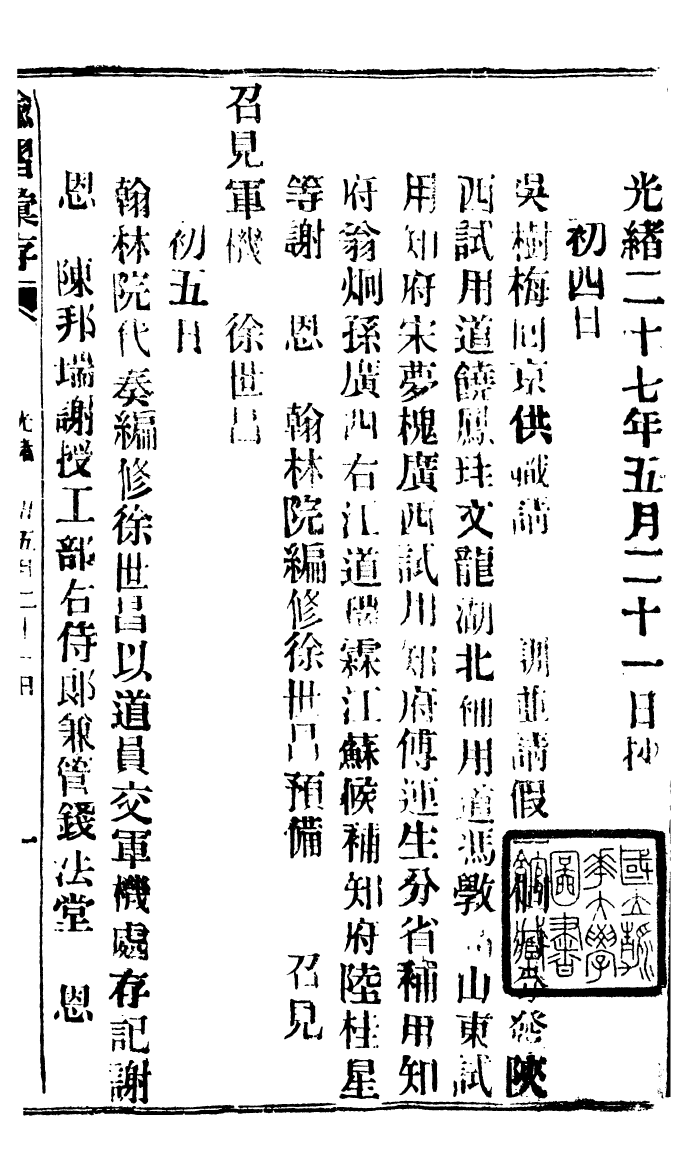 光緒二十七年五月二十一日抄
初四日
吳樹梅回京供職請 訓並請假 發陝
西試用道饒鳳珪文龍湖北補用道馮敩 山東試
用知府宋夢槐廣西試用知府傅運生分省補用知
府翁炯孫廣西右江道 霖江蘇候補知府陸桂星
等謝 恩 翰林院編修徐世昌預備 召見
召見軍機 徐世昌
初五日
翰林院代奏編修徐世昌以道員交軍機處存記謝
恩 陳邦瑞謝授工部右侍郎兼管錢法堂 恩
諭摺彙存 光緒 五月二十一日 一
國立清華大學圖書館藏